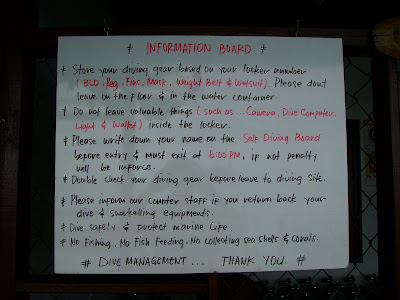 * INFORMATION BOARD *
* Store your diving gear based on your locker number
( BCD, Reg, Fins, Mask, Weight Belt & Wetsuit). Please don't
leave on the floor & in the water container.
* Do not leave valuable things ( such as ... Camera, Dive Computer,
Light & Wallet) inside the locker.
* Please write down your name on the Self Diving Board
before entry & must exit at 6:00 PM, if not penalty
will be inforce.
* Double check your diving gear before leave to diving site.
* Please inform our counter staff if you return back your
dive & snorkelling equipments.
* Dive safely & protect marine life.
* No Fishing, No Fish Feeding, No collecting sea shells & corals.
# DIVE MANAGEMENT .... THANK YOU. #